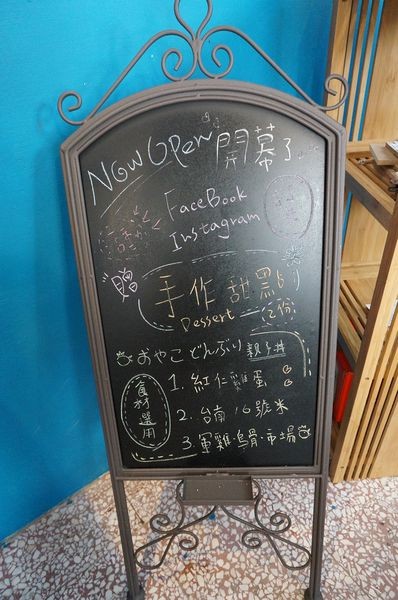 Now Open 開幕了
FaceBook
Instagram
贈
手作甜點
Dessert
(2份)
おやこどんぶり 親子丼
食材選用
1. 紅仁雞蛋
2. 台南16號米
3. 軍雞・烏骨・市場